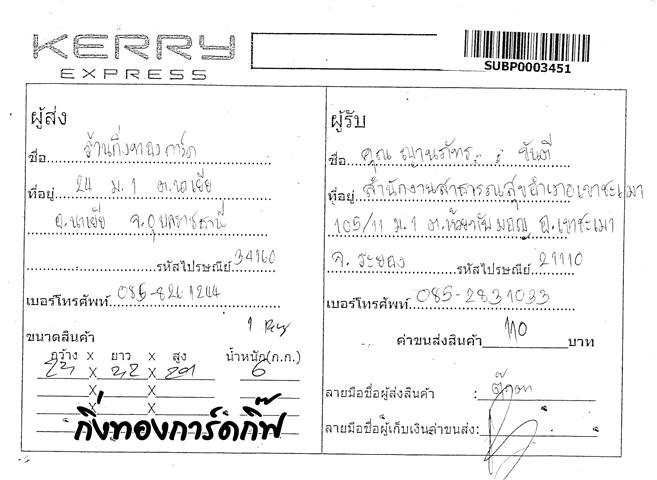 KERRY
EXPRESS
SUBP0003451
ผู้ส่ง
ชื่อ ร้านกิ่งทองการ์ด
ที่อยู่ 24 ม.1 ต.นาเยีย
อ.นาเยีย จ.อุบลราชธานี
รหัสไปรษณีย์ 34160
เบอร์โทรศัพท์ 085-8261244
ขนาดสินค้า
กว้าง X ยาว X สูง น้ำหนัก(ก.ก.)
X X 6
X X
X X
กิ่งทองการ์ดกิ๊ฟ
ผู้รับ
ชื่อ คุณ ญาณภัทร ขันตี
ที่อยู่ สำนักงานสาธารณสุขอำเภอเขาชะเมา
105/11 ม.1 ต.ห้วยทับมอญ อ.เขาชะเมา
จ. ระยอง รหัสไปรษณีย์ 21110
เบอร์โทรศัพท์ 085-2831033
ค่าขนส่งสินค้า 110 บาท
ลายมือชื่อผู้ส่งสินค้า : ตุ๊กตา
ลายมือชื่อผู้เก็บเงินค่าขนส่ง: